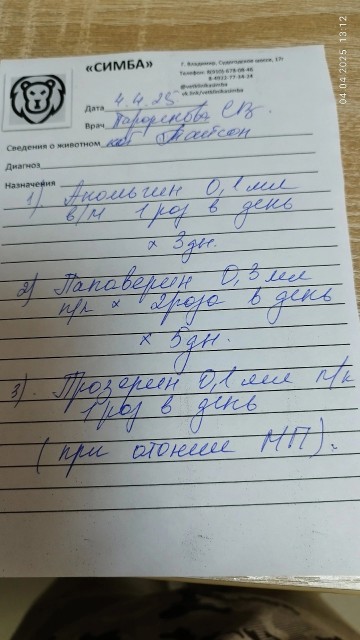 04.04.2025 13:12
«СИМБА»
Г. Владимир, Судогодское шоссе, 17г
Телефон: 8(910)-678-08-46
8-4922-77-34-24
@vetklinikasimba
vk.link/vetklinikasimba
Дата 4.4.25
Врач
Сведения о животном кот
Диагноз
Назначения
1) Анальгин 0,1 мл
в/м 1 раз в день
х 3 дн.
2) Папаверин 0,3 мл
п/к х 2 раза в день
х 5 дн.
3). Прозерин 0,1 мл п/к
1 раз в день
(при атонии МП).